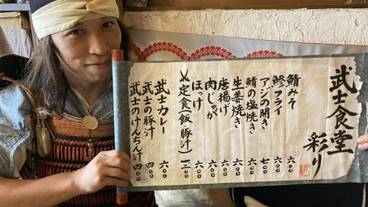 武士食堂
彩り
鯖みそ 六〇〇
鯵フライ 六〇〇
アジの開き 七〇〇
鯖の塩焼き 六〇〇
生姜焼き 六〇〇
唐揚げ 六〇〇
肉じゃが 六〇〇
ほっけ 六〇〇
定食(飯、豚汁)
武士カレー 六〇〇
武士の豚汁 四〇〇
武士のけんちん汁 四〇〇